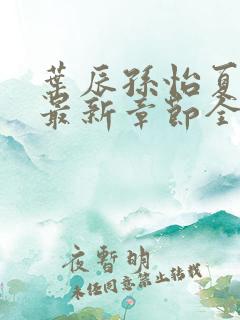 葉辰孫怡夏
最新章節全
夜暫明
未经同意禁止转载